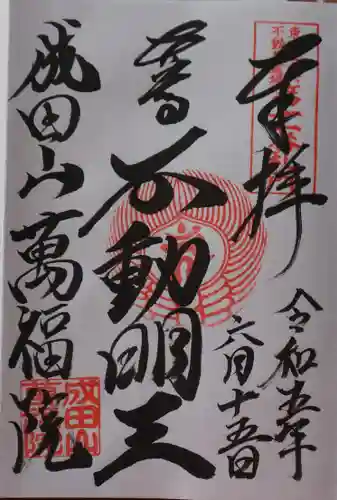 奉拝
令和五年
六月十五日
尊
不動明王
成田山萬福院
成田山
萬福院